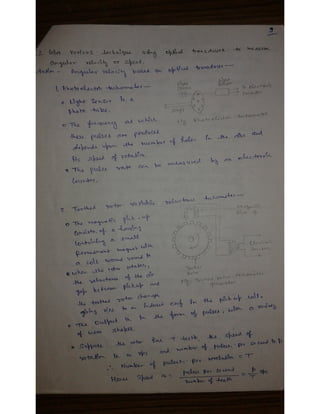 2. Give various technique using optical transducer to measure
angular velocity or speed.
Angular velocity based on optical transducer —
1. Photoelectric tachometer —
• Light Sensor is a
photo tube.
• The frequency at which
these pulses are produced
depends upon the number of holes in the disc and
its speed of rotation.
• The pulse rate can be measured by an electronic
counter.
Fig: Photo electric tachometer
2. Toothed rotor variable reluctance tachometer —
• The magnetic pick-up
consists of a housing
containing a small
permanent magnet with
a coil wound round it.
• When the rotor rotates,
the reluctance of the air
gap between pickup and
the toothed rotor changes
giving rise to a induced emf in the pickup coil.
• The output is in the form of pulses, with a variety
of wave shapes.
• Suppose the rotor has T teeth the speed of
rotation is n rps and number of pulses per second is P.
∴ Number of pulses per revolution = T
Hence speed n = pulses per second / number of teeth = P/T rps